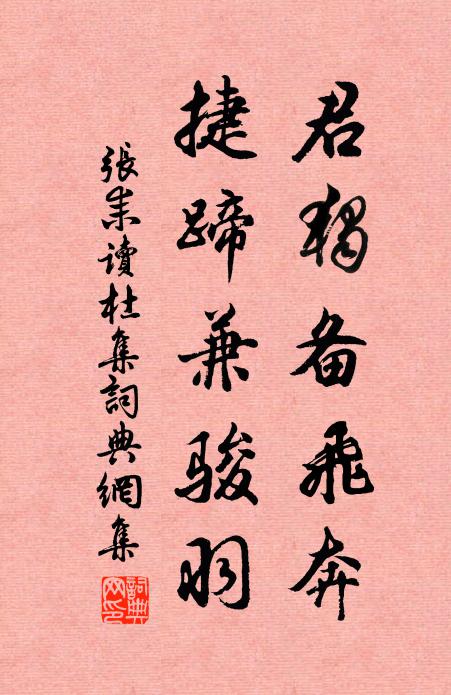 君獨备飛奔
捷蹄兼骏羽
張耒讀杜集詞典網集
詞典網印